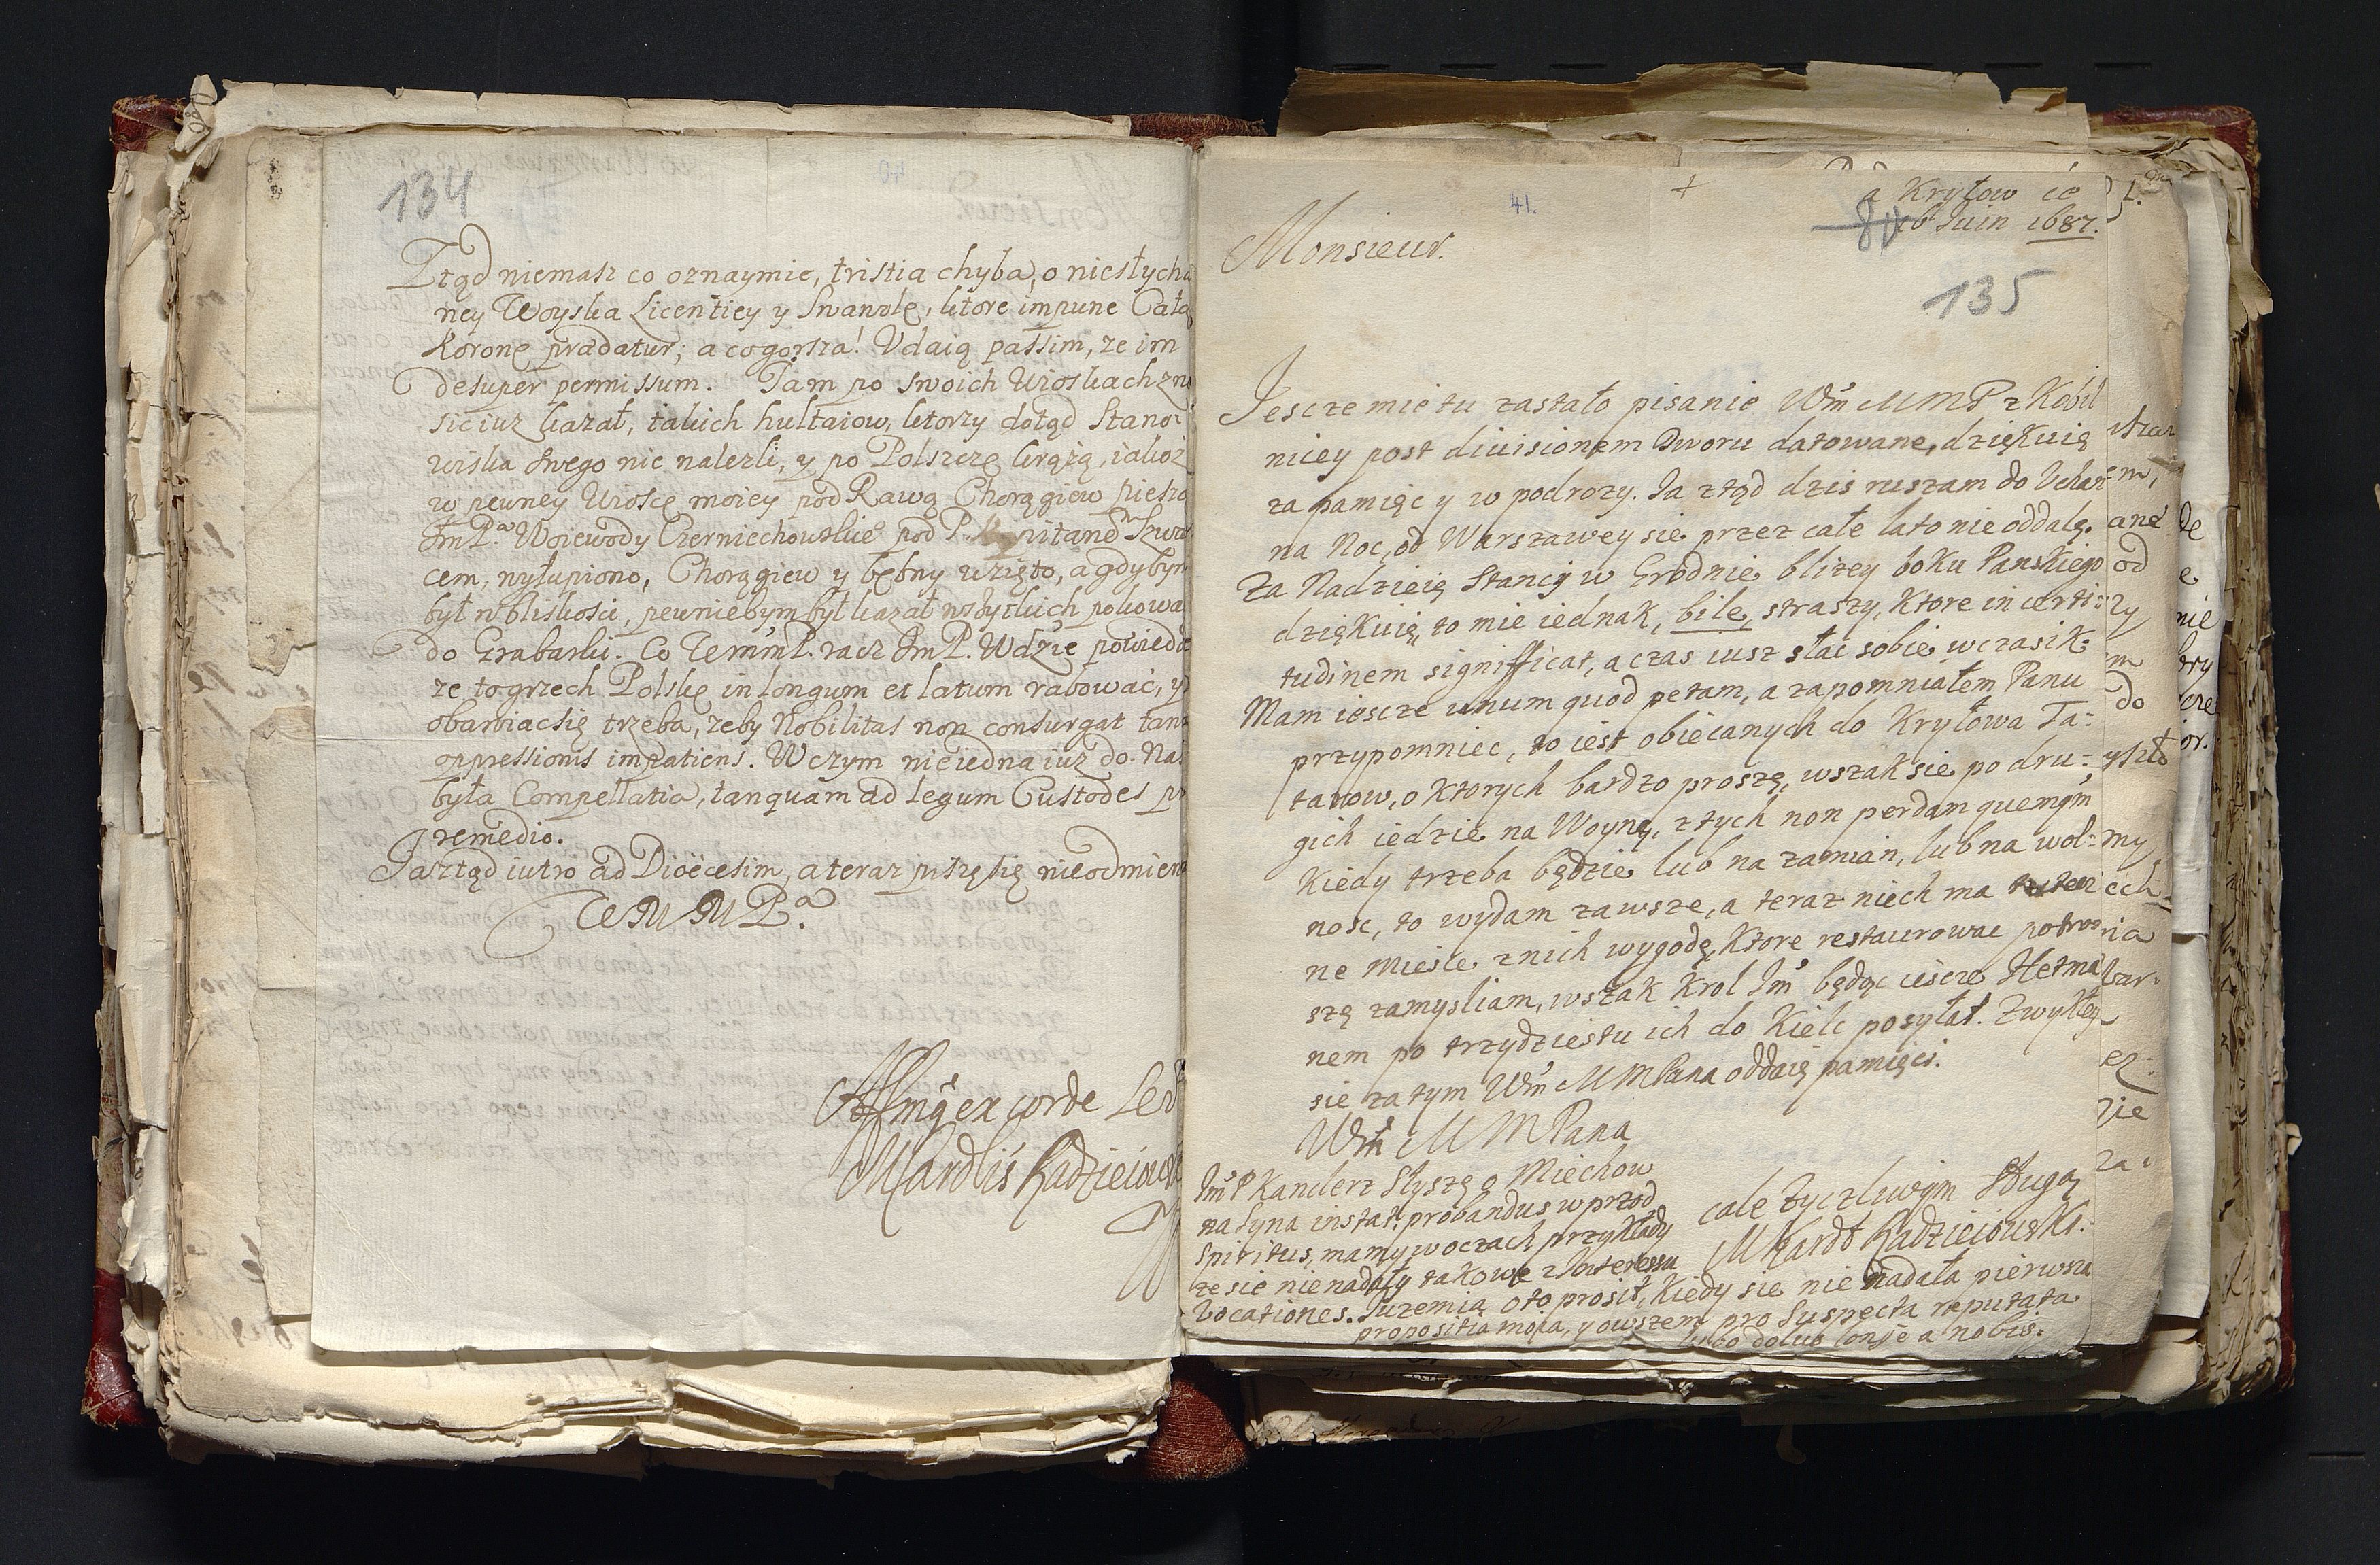 134
Ztąd niemasz co oznaymic, tristia chyba, o niesłycha
ney Woyska Licentiey y Swanolę, ktore impune Całą
Koronę prædatur; a co gorsza! Vdaią passim, ze im
desuper permissum. Jam po swoich Wioskach zno
sic iuz kazał, takich hultaiow, ktorzy dotąd Stano:
wiska swego nie nalezli, y po Polszcze krążą, iakoż
w pewney Wiosce moiey pod Rawą Chorągiew pieszą
JmPa Woiewody Czerniechowskie pod P.
cem, wyłupiono, Chorągiew y bębny wzięto, a gdybym
był w bliskosci, pewniebym był kazał wszytkich pokowa
do Grabarki. Co WmmP. racz JmP. Wdzie powiedz
ze to grzech Polskę in longum et latum rabować, y
obawiac się trzeba, zeby Nobilitas non consurgat tan
oppressionis impatiens. W czym nie iedna iuz do Na
była Compellatia, tanquam ad legum Custodes pr
remedio.
Ja ztąd iutro ad Dioecesim, a teraz piszę się nieodmien
WMMPa.
ex corde
MKardlis Radzieiows
41.
a Krytow ce
Juin 1687.
Monsieur.
135
Jescze mie tu zastało pisanie Wm MMP z Kobil
nicy post diuisionem Dworu datowane, dziękuię
za pamięc y w podrozy. Ja ztąd dzis ruszam do Vchan
na Noc, od Warszawey sie przez całe lato nie oddalę.
Za Nadzieię Stancij w Grodnie blizey boku Panskiego
dziękuię, to mie iednak, bile, straszy, Ktore incerti:
tudinem significat, a czas iusz słac sobie wczasik.
Mam iescze unum quod petam, a zapomniałem Panu
przypomniec, to iest obiecanych do Kryłowa Ta:
tarow, o Ktorych bardzo proszę, wszak sie po dru:
gich iedzie na Woynę, z tych non perdam quemqm
Kiedy trzeba będzie lub na zamian, lub na wol:
nosc, to wydam zawsze, a teraz niech ma
ne Miescie z nich wygodę, Ktore restaurowac potrosz
szę zamysliam, wszak Krol Jm będąc iescze Hetma
nem po trzydziestu ich do Kielc posyłał. Zwykłey
sie za tym Wm MMPana oddaię pamięci.
Wm MMPana
Jm P Kanclerz Słyszę o Miechow
na Syna instat, probandus wprzod
Spiritus, mamy w oczach przykłady
ze sie nie nadały takowe z Interessu
Vocationes. Juzemia oto prosił, Kiedy sie nie nadała pierwsza
propositia moia, y owszem pro Suspecta reputata
lubo dolus longe a nobis.
cale zyczliwym Sługą
MKardł Radzieiowski.